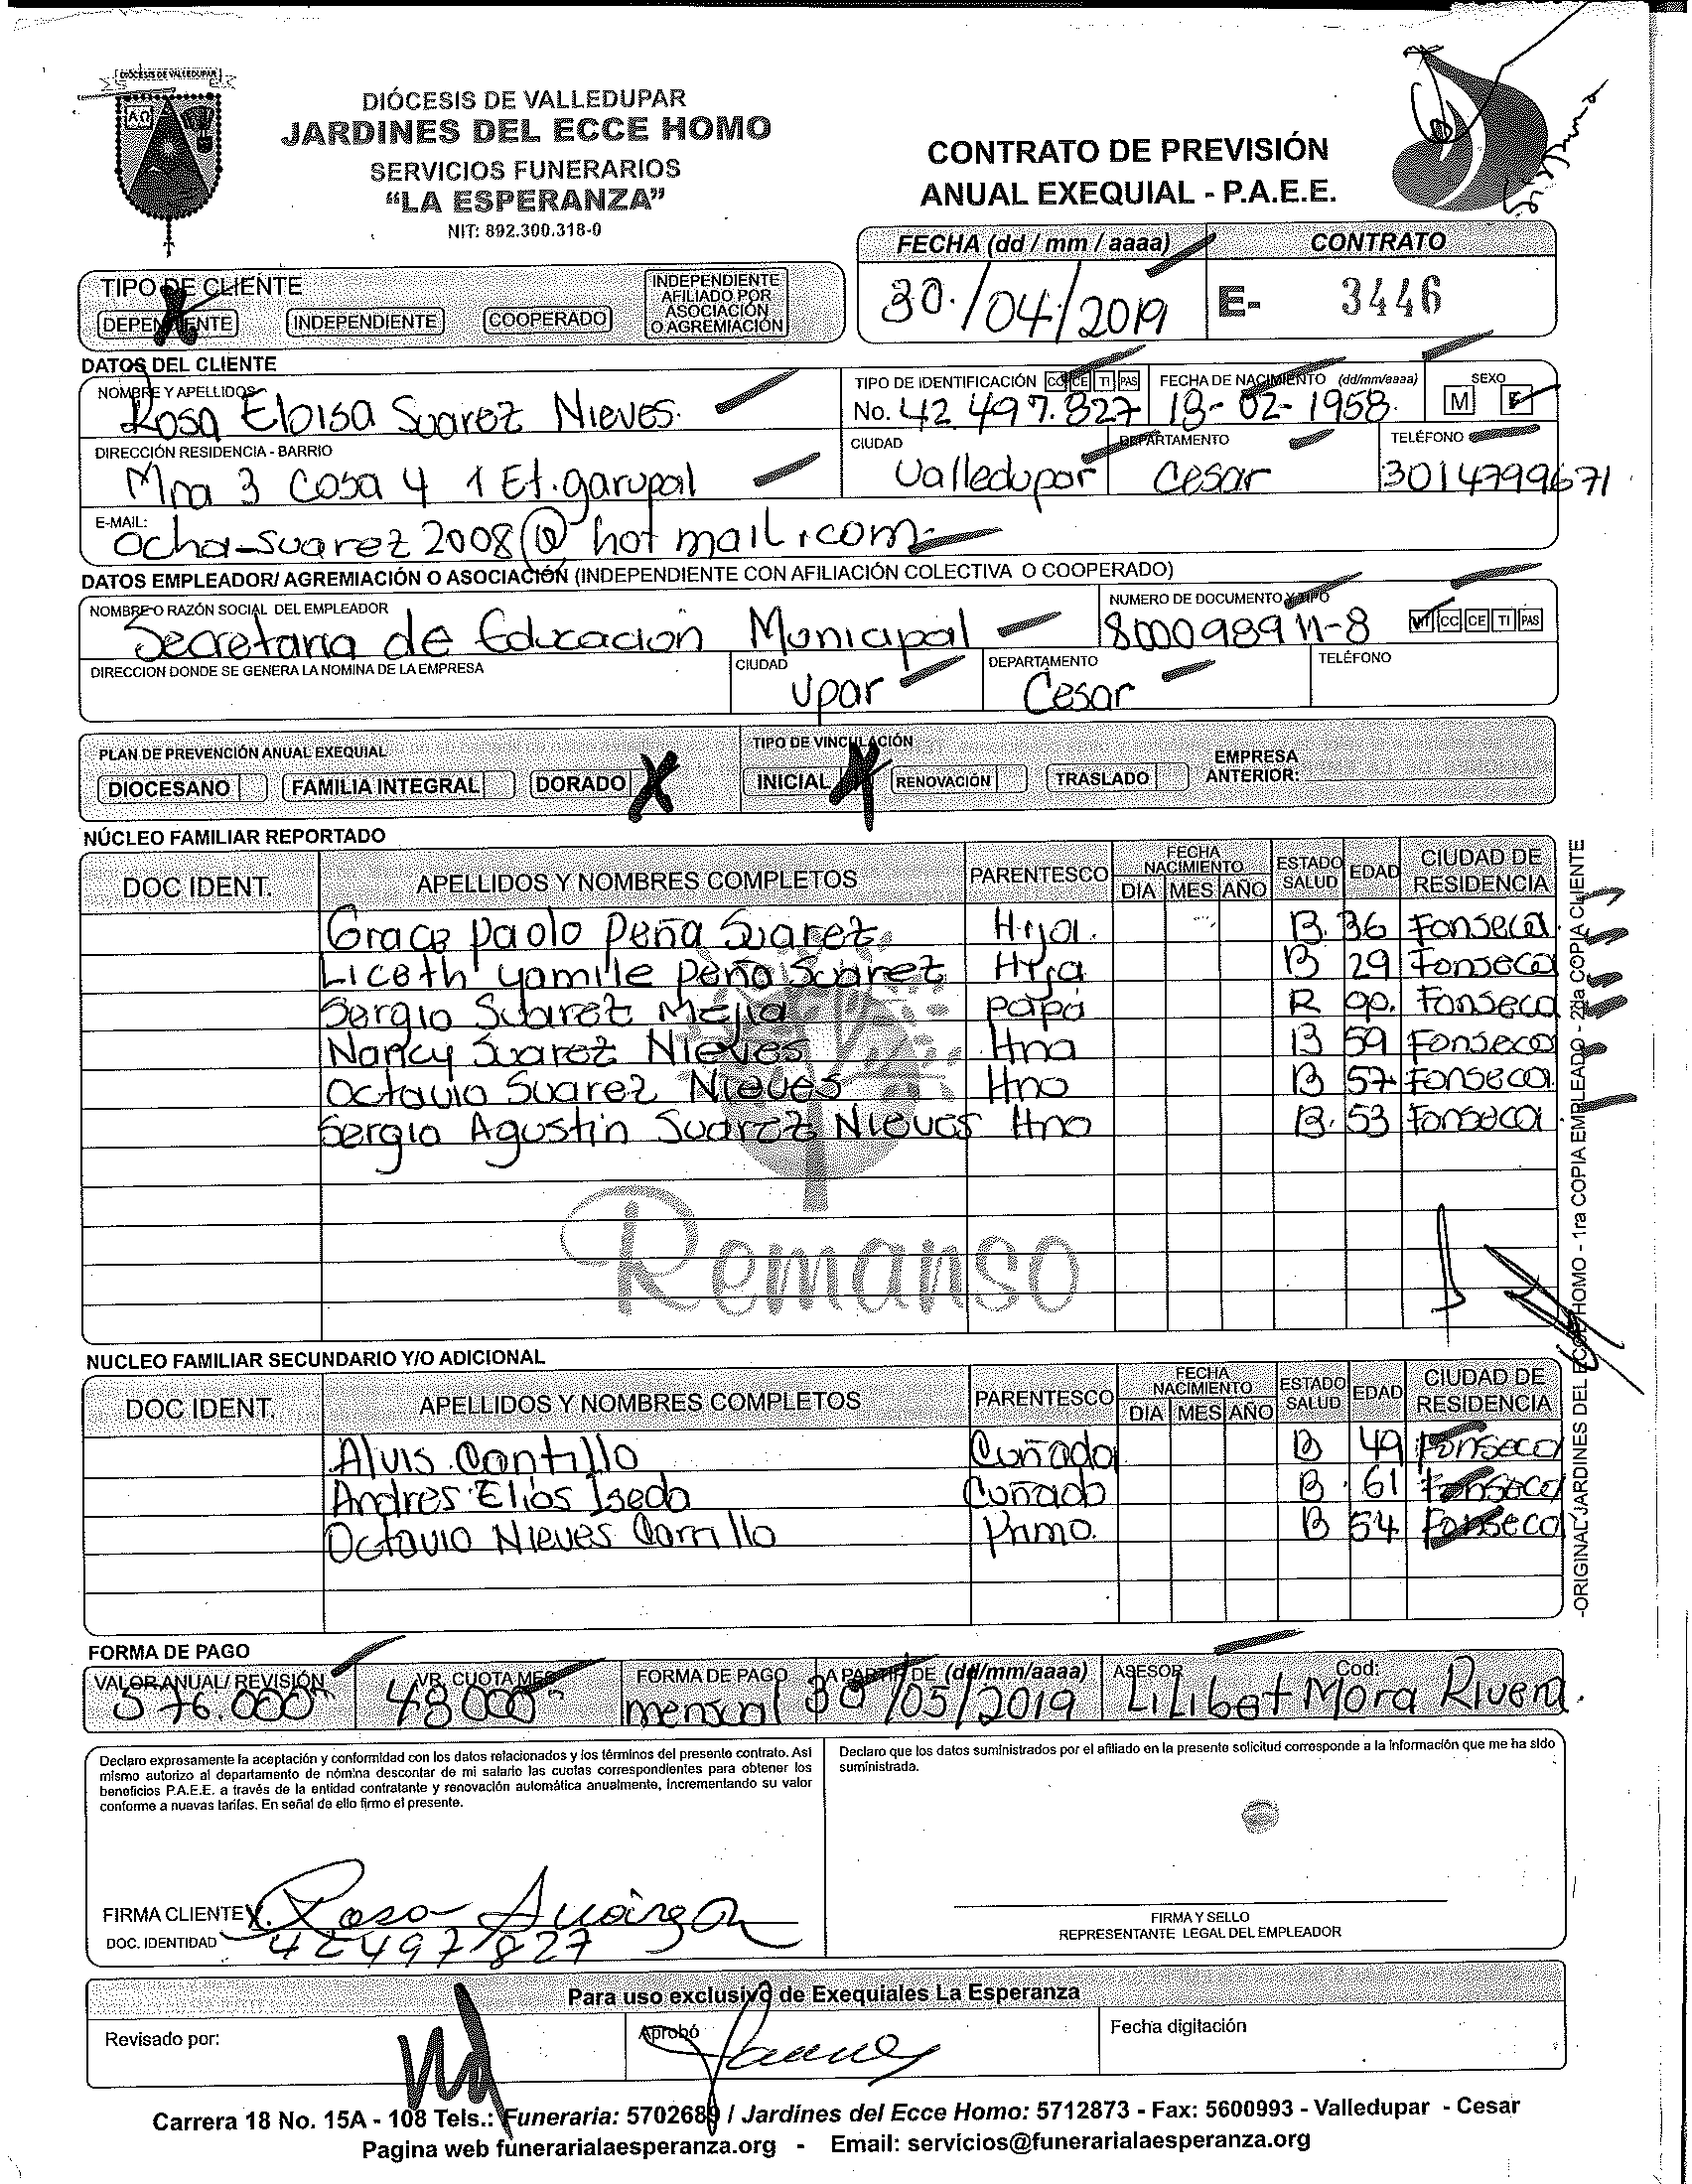 DIÓCESIS DE VALLEDUPAR
DIÓCESIS DE VALLEDUPAR
JARDINES DEL ECCE HOMO
SERVICIOS FUNERARIOS
“LA ESPERANZA”
NIT: 892.300.318-0
CONTRATO DE PREVISIÓN
ANUAL EXEQUIAL - P.A.E.E.
FECHA (dd / mm / aaaa) CONTRATO
30/04/2019 E- 3446
TIPO DE CLIENTE
DEPENDIENTE INDEPENDIENTE COOPERADO INDEPENDIENTE AFILIADO POR ASOCIACIÓN O AGREMIACIÓN
DATOS DEL CLIENTE
NOMBRE Y APELLIDOS TIPO DE IDENTIFICACIÓN CC CE TI PAS FECHA DE NACIMIENTO (dd/mm/aaaa) SEXO
Rosa Eloisa Suarez Nieves. No. 42 497.827 18-02-1958. M F
DIRECCIÓN RESIDENCIA - BARRIO CIUDAD DEPARTAMENTO TELÉFONO
Mna 3 Casa 4 1 Et. garupal Valledupar Cesar 3014799671
E-MAIL:
Ocha-suarez2008@hotmail.com
DATOS EMPLEADOR/ AGREMIACIÓN O ASOCIACIÓN (INDEPENDIENTE CON AFILIACIÓN COLECTIVA O COOPERADO)
NOMBRE O RAZÓN SOCIAL DEL EMPLEADOR NUMERO DE DOCUMENTO Y TIPO
Secretaria de Educacion Municipal 800098911-8 NIT CC CE TI PAS
DIRECCION DONDE SE GENERA LA NOMINA DE LA EMPRESA CIUDAD DEPARTAMENTO TELÉFONO
Upar Cesar
PLAN DE PREVENCIÓN ANUAL EXEQUIAL TIPO DE VINCULACIÓN
DIOCESANO FAMILIA INTEGRAL DORADO X INICIAL X RENOVACIÓN TRASLADO EMPRESA ANTERIOR:
NÚCLEO FAMILIAR REPORTADO
DOC IDENT. APELLIDOS Y NOMBRES COMPLETOS PARENTESCO FECHA NACIMIENTO DIA MES AÑO ESTADO SALUD EDAD CIUDAD DE RESIDENCIA
Grace Paola Peña Suarez Hija. B. 36 Fonseca.
Liceth Yamile Peña Suarez Hija B 29 Fonseca
Sergio Suarez Mejia papá R 90. Fonseca
Nancy Suarez Nieves Hna B 59 Fonseca
Octavio Suarez Nieves Hno B 57 Fonseca
Sergio Agustin Suarez Nieves Hno B. 53 Fonseca.
Remanso
NUCLEO FAMILIAR SECUNDARIO Y/O ADICIONAL
DOC IDENT. APELLIDOS Y NOMBRES COMPLETOS PARENTESCO FECHA NACIMIENTO DIA MES AÑO ESTADO SALUD EDAD CIUDAD DE RESIDENCIA
Aluis Cantillo Cuñada B 49 Fonseca
Andres Elias Iseda Cuñado B 61 Fonseca
Octavio Nieves Carrillo Primo. B 54 Fonseca
-ORIGINAL JARDINES DEL ECCE HOMO - 1ra COPIA EMPLEADO - 2da COPIA CLIENTE
FORMA DE PAGO
VALOR ANUAL/ REVISIÓN VR. CUOTA MES FORMA DE PAGO A PARTIR DE (dd/mm/aaaa) ASESOR Cod:
576.000 48000 mensual 30/05/2019 Lilibet Mora Rivera.
Declaro expresamente la aceptación y conformidad con los datos relacionados y los términos del presente contrato. Así
mismo autorizo al departamento de nómina descontar de mi salario las cuotas correspondientes para obtener los
beneficios P.A.E.E. a través de la entidad contratante y renovación automática anualmente, incrementando su valor
conforme a nuevas tarifas. En señal de ello firmo el presente.
Declaro que los datos suministrados por el afiliado en la presente solicitud corresponde a la información que me ha sido
suministrada.
FIRMA CLIENTE X. Rosa Suárez
DOC. IDENTIDAD 42497827
FIRMA Y SELLO
REPRESENTANTE LEGAL DEL EMPLEADOR
Para uso exclusivo de Exequiales La Esperanza
Revisado por: Aprobó Fecha digitación
Carrera 18 No. 15A - 108 Tels.: Funeraria: 5702689 / Jardines del Ecce Homo: 5712873 - Fax: 5600993 - Valledupar - Cesar
Pagina web funerarialaesperanza.org - Email: servicios@funerarialaesperanza.org